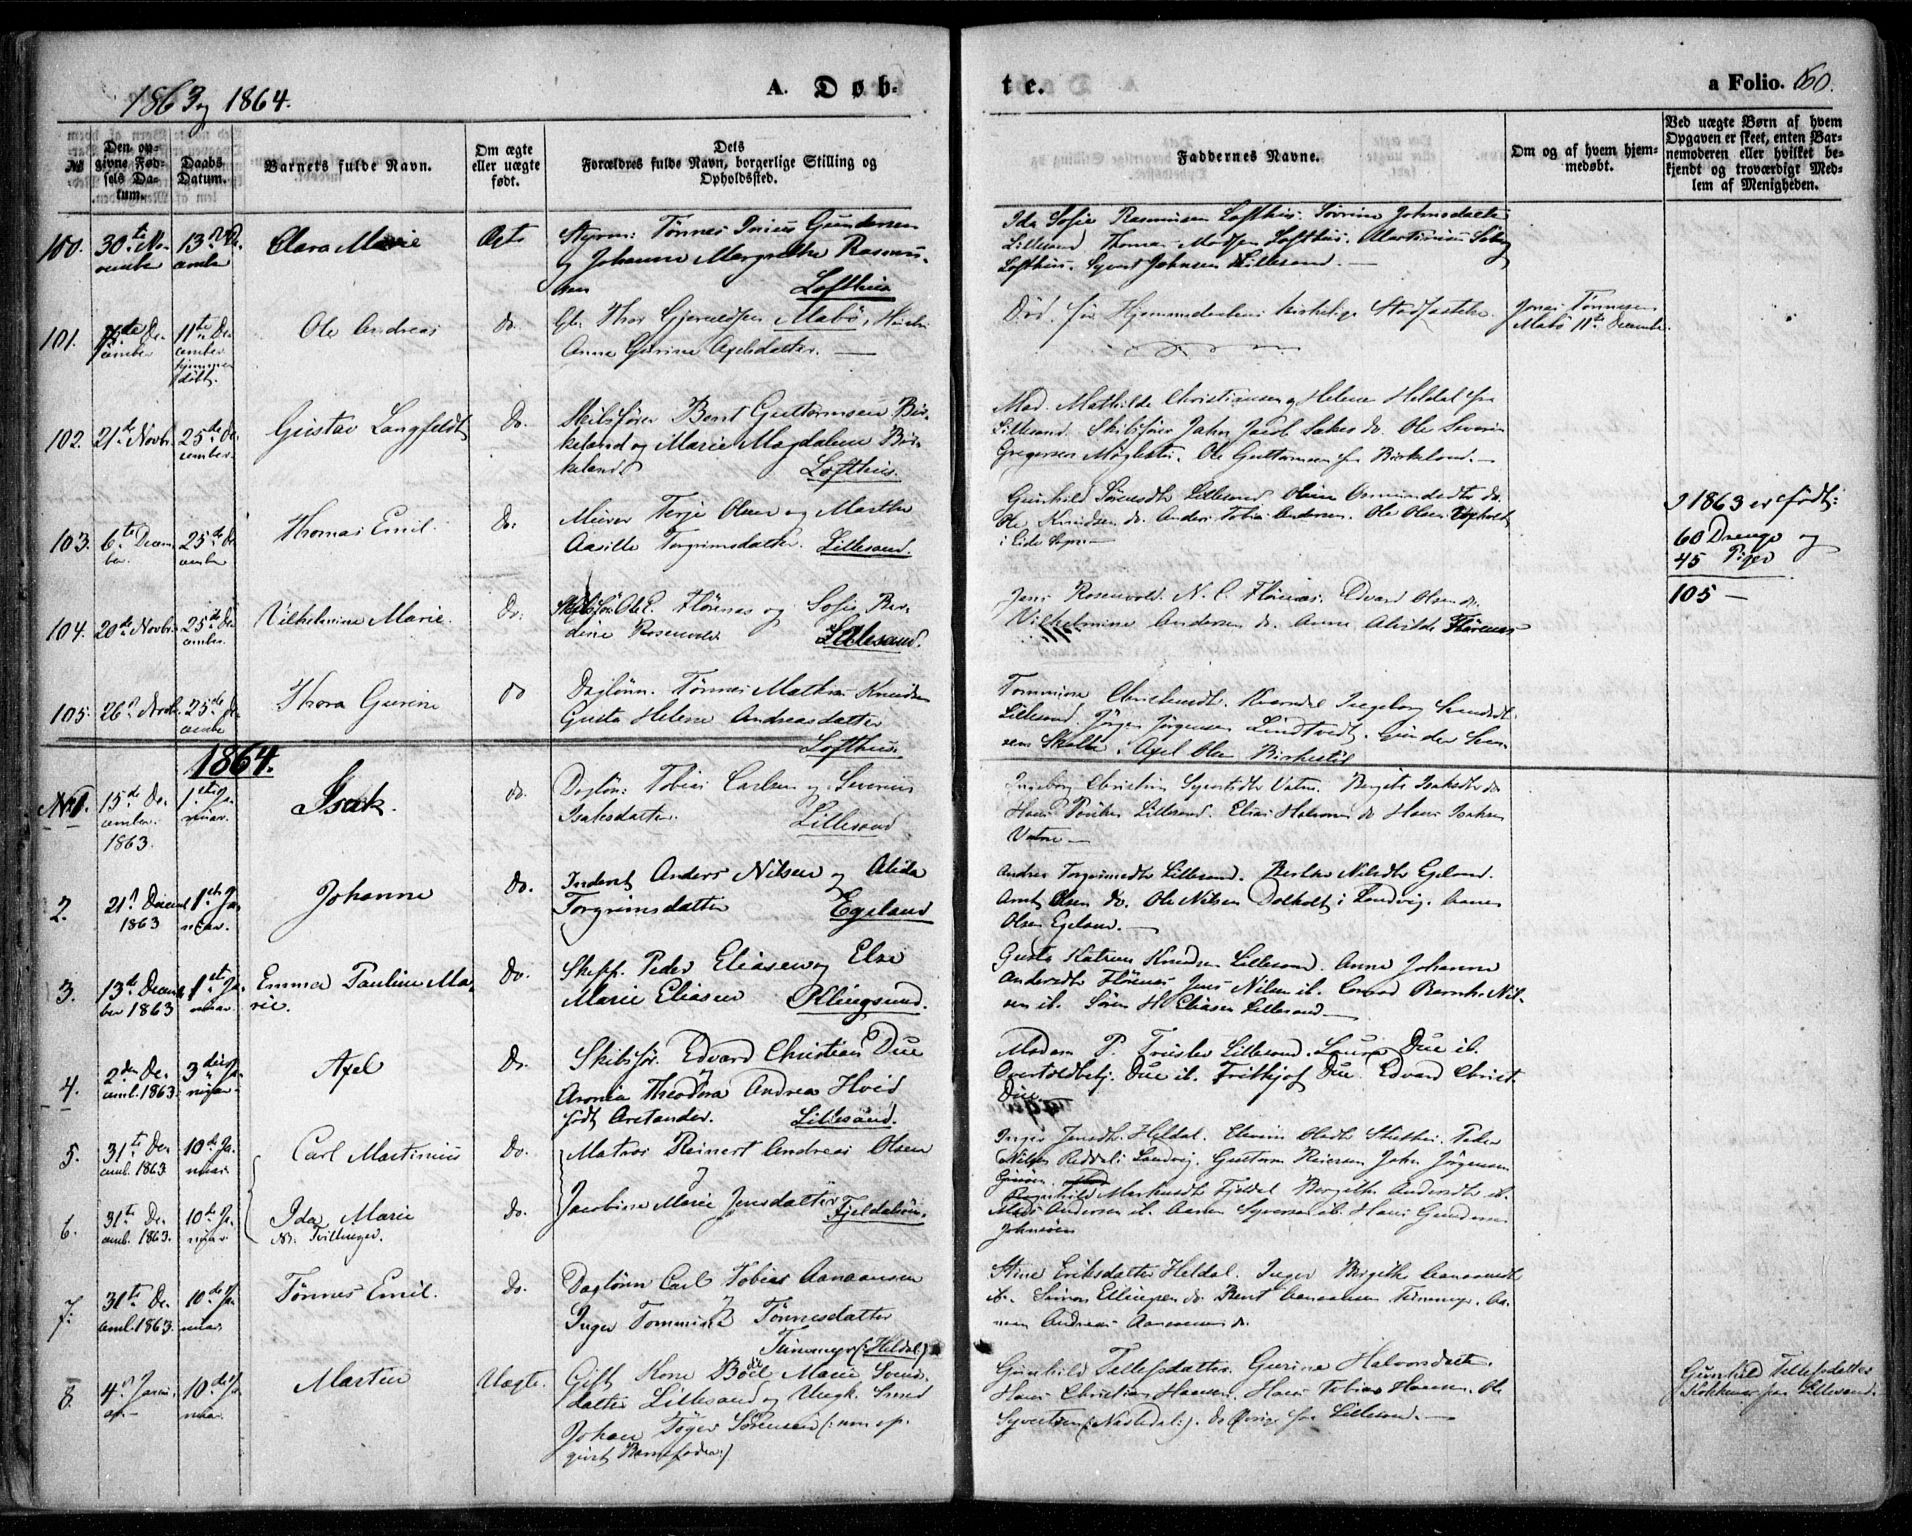 1863 og 1864.
A. Døb-
te.
a Folio. 60.
No
Den op-
givne Fød-
sels Da-
tum.
Daabs
Datum.
Barnets fulde Navn.
Om ægte
eller uægte
født.
Dets
Forældres fulde Navn, borgerlige Stilling og
Opholdssted.
Faddernes Navne.
Om og af hvem hjem-
medøbt.
Ved uægte Børn af hvem
Opgaven er skeet, enten Bar-
nemoderen eller hvilket be-
kjendt og troværdigt Med-
lem af Menigheden.
100.
30te No-
vember
Clara Marie
Ægte
Styrm: Tønnes Gundersen
og Johanne Margrethe Rasmu-
sen Lofthus
Ida Sofie Rasmusen Lofthus. Sørine Johnsdatter
Lillesand Thomas Madsen Lofthus. Martinius
Lofthus. Syvert Johnsen Lillesand. —
101.
11te De-
cember
hjemme
døbt.
Ole Andreas
do.
Thor Mabø,
Anne Gurine Axelsdatter. —
Død før Hjemmedaabens kirkelige Stadfæstelse
Jens Tønnesen
Mabø 11te December
102.
21de Novbr.
25de De-
cember.
Gustav Langfeldt
Do.
Skibsfører Bent Guttormsen Bir-
keland og Marie Magdalene Bir-
keland. Lofthus.
Mad. Mathilde Christiansen og Helene Heldal fra
Lillesand. Skibsfører Jahn Jacob do. Ole Severin
Gregersen Møglestu. Ole Guttormsen fra Birkeland. —
103.
6te Decem-
ber.
25de De-
cember
Thomas Emil.
Do:
Murer Terje Olsen og Marthe
Aasille Torgrimsdatter. Lillesand.
Gunhild Sørensdtr Lillesand Oline do.
Ole Knudsen do. Anders Tobias Andersen. Ole Olsen
i Eide
I 1863 er født:
60 Drenge og
45 Piger
105 —
104.
20de Novbr.
25de De-
cember.
Vilhelmine Marie.
Do:
Skibsfør. Ole C. Flørenæs og Sofie Ber-
dine Rosenvold Lillesand.
Jens Rosenvold. N. C. Flørenæs. Edvard Olsen do.
Vilhelmine Andersen do. Anne Alvilde Flørenæs
105.
26d Novbr.
25de De-
cember
Thora Gurine
do
Daglønn. Tønnes Mathias Knudsen
Gusta Helene Andreasdatter
Lofthus.
Tommine Ingeborg
Lillesand. Jørgen Jørgensen Lindtvedt. Gunder
Axel Olsen Birkestil
1864.
No 1.
15de De-
cember.
1863.
1ste Ja-
nuar.
Isak.
do.
Dagløn: Tobias Carlsen og Severine
Isaksdatter. Lillesand
Ingeborg Christine Syvertsdtr Vatne. Bergite Isaksdtr do
Hans Lillesand. Elias Halvorsen do Hans Isaksen
Vatne —
2.
21d Decemb
1863
1ste Ja-
nuar.
Johanne
Do.
Inderst Anders Nilsen og Alida
Torgrimsdatter Egeland
Andrea Torgrimsdtr Lillesand. Berthe Nilsdtr Egeland.
Arnt Olsen do. Ole Nilsen Dolholt i Landvig. Aanen
Olsen Egeland. —
3.
13de Decem-
ber 1863
1ste Ja-
nuar.
Emma Pauline Ma-
rie.
Do.
Skipp. Peder Eliasen og Else
Marie Eliasen Klingsund.
Gusta Katrine Knudsen Lillesand. Anne Johanne
Andersdtr Flørenæs Jens Nilsen ib. Conrad Barnh. Nil-
sen ib. Søren H. Eliasen Lillesand —
4.
2den De-
cemb. 1863.
3die Ja-
nuar.
Axel
Do.
Skibsfør. Edvard Christian Due
Aronia Theodora Andrea Hvid
født Aretander. Lillesand.
Madam P. Lillesand. Laura Due ib.
Overtoldbetj. Due ib. Frithjof Due. Edvard Christ.
Due.
5.
31te De-
cemb. 1863
10de Ja-
nuar.
Carl Martinius
Do.
Matros Reinert Andreas Olsen
og
Inger Jensdtr Heldal. Olsdtr Peder
Nilsen Reddal i Landvig. Guttorm Reiersen John Jørgensen
6.
31te De-
cemb. 1863.
10de Ja-
nuar
Ida Marie
Nb. Tvillinger.
Do.
Jacobine Marie Jensdatter Fjeldalsøen.
Ragnhild Markusdtr Fjeldal Bergithe Andersdtr ib.
Mads Andersen ib. Aanen Syversen ib. Hans Gundersen
7.
31te De-
cemb. 1863.
10de Ja-
nuar.
Tønnes Emil.
Do.
Daglønn Carl Tobias Aanaansen
og
Inger Tommine Tønnesdatter
(: Heldal)
Stine Eriksdatter Heldal. Inger Birgithe
ib. Simon Ellingsen do. Bent Aanaansen Aa-
nen Andreas Aanonsen do.
8.
4de Janu-
ar —
10de Ja-
nuar.
Martin
Uægte.
Gift Kone Bodil Marie
datter Lillesand og Ungk. Smed
Johan Tøger Sørensen (: som op-
givet Barnefader :)
Gunhild Tellefsdatter. Gurine Halvorsdatter.
Hans Christian Hansen. Hans Tobias Hansen. Ole
Syvertsen (: Næstedal :). de Øvrige fra Lillesand. —
Gunhild Tellefsdatter
fra Lillesand.